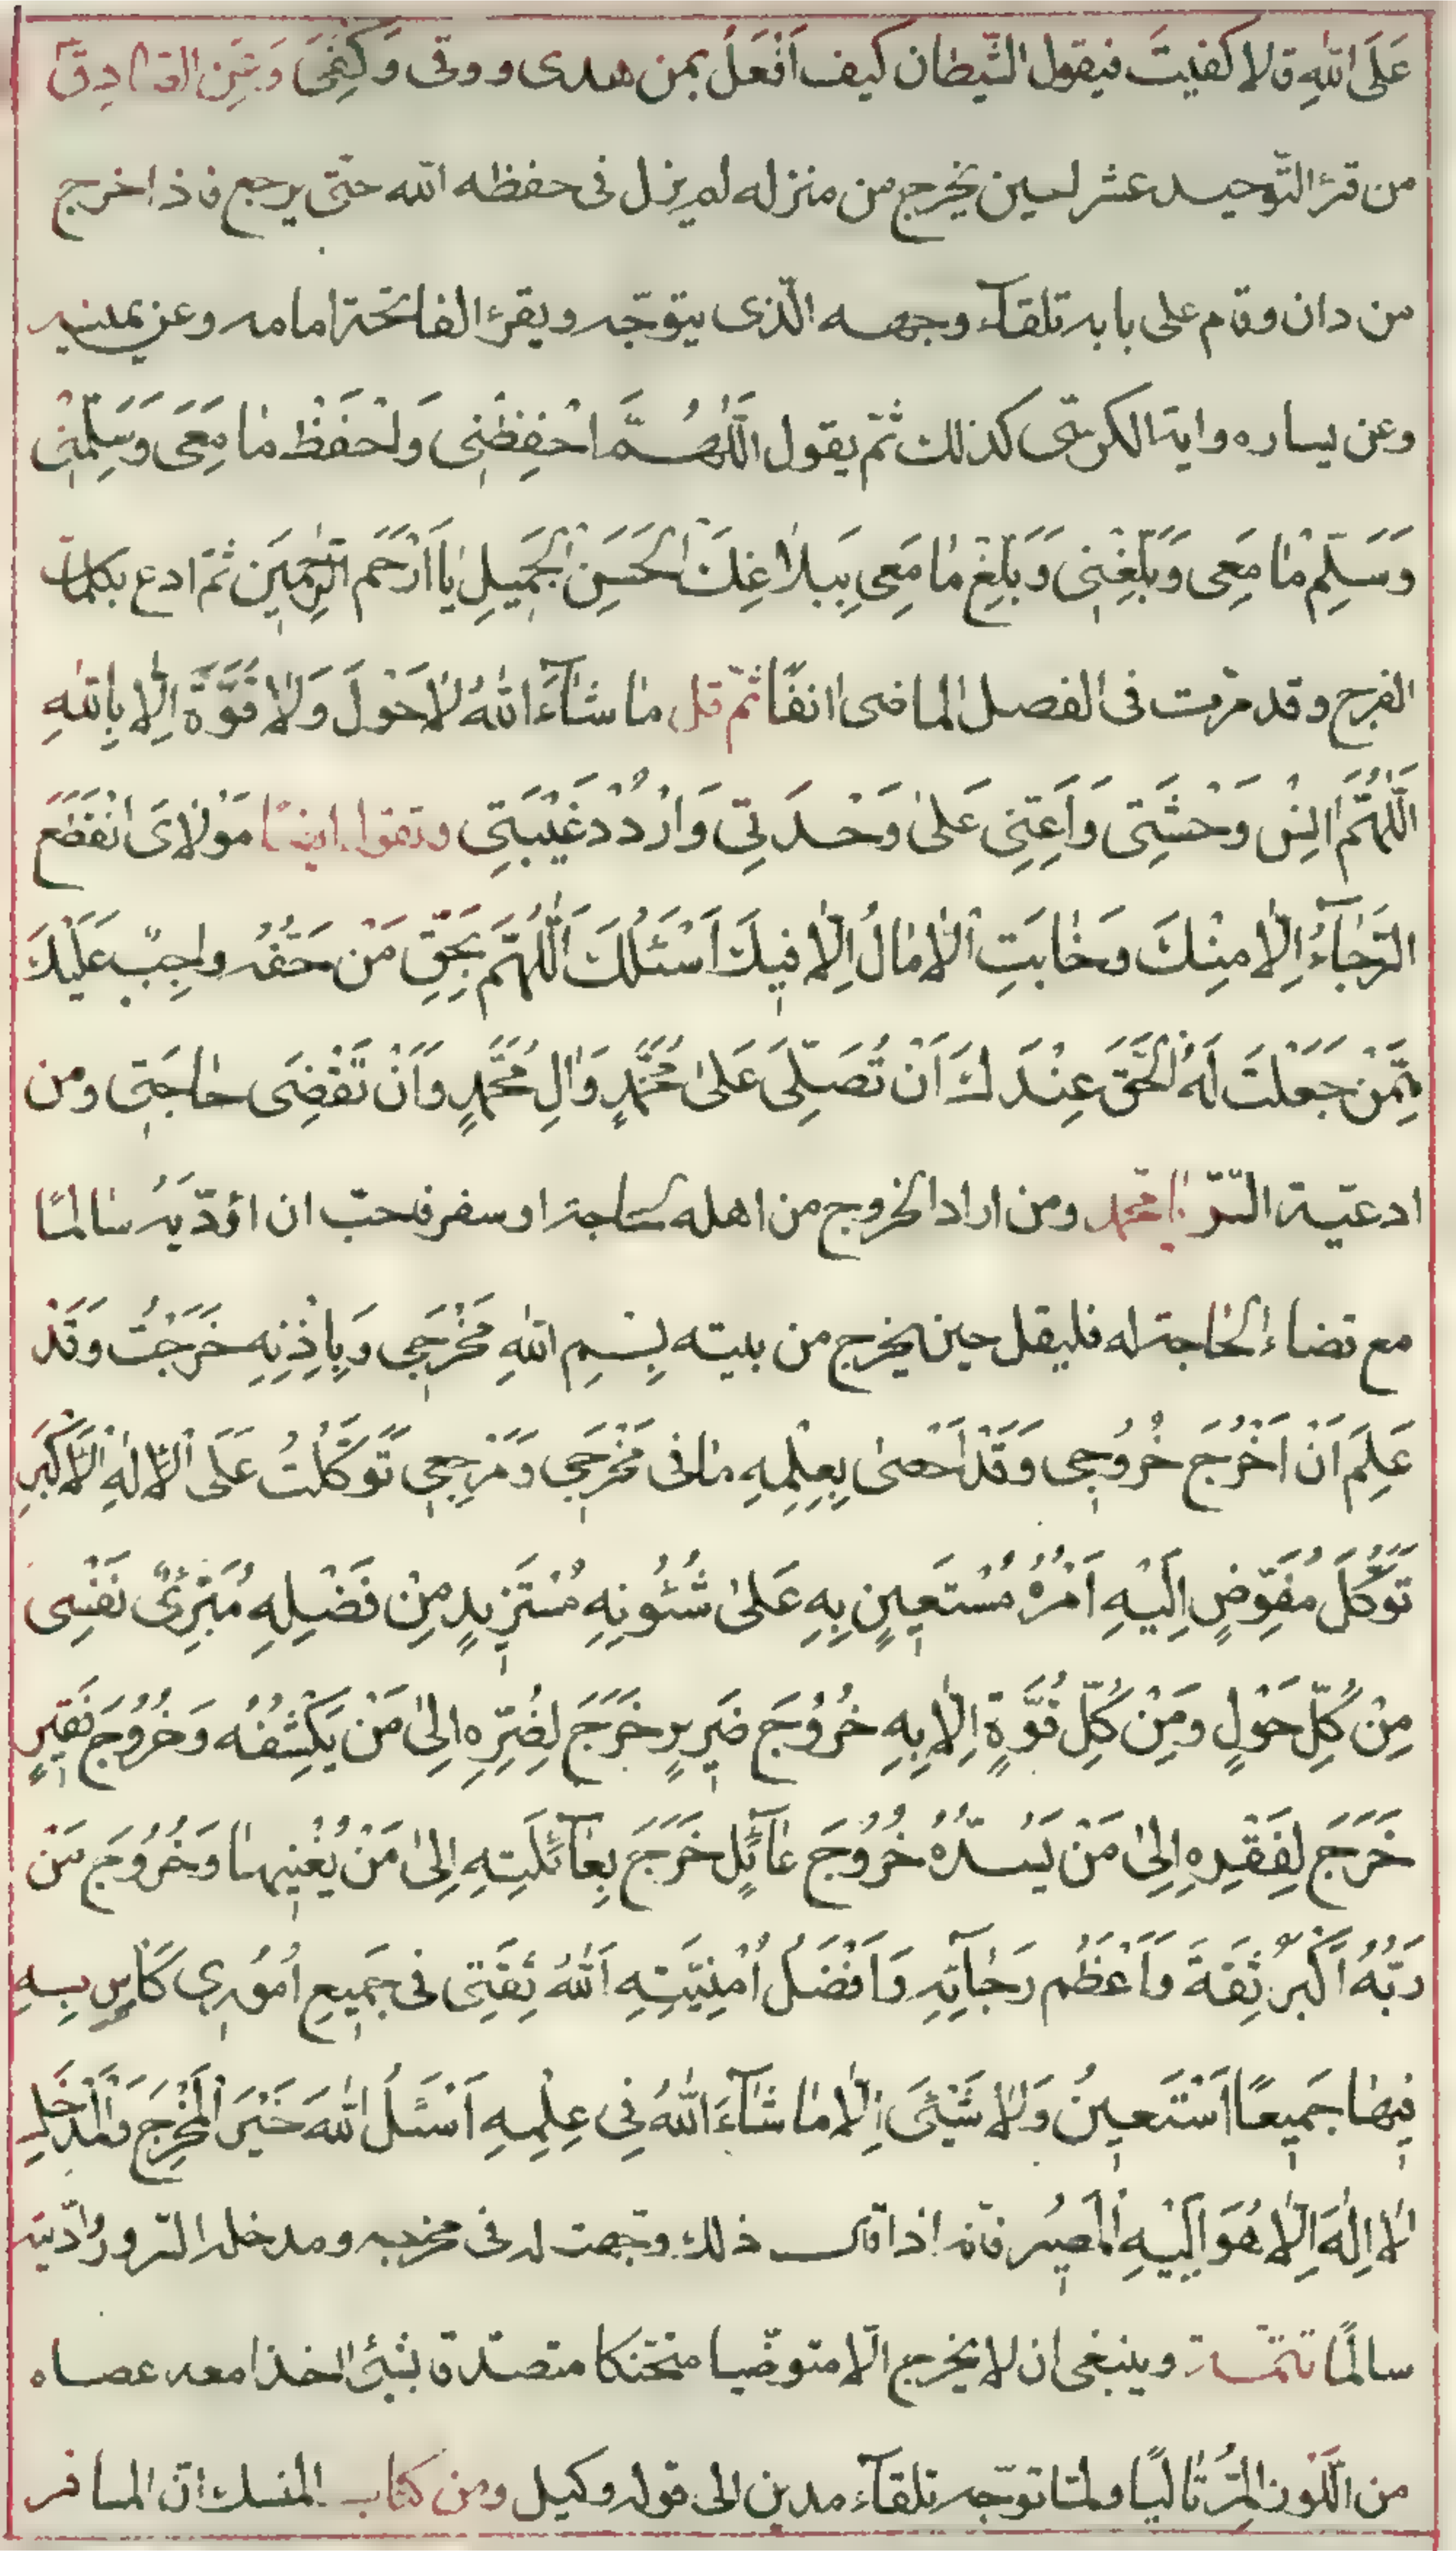 عَلَى اللهِ قالا كفيتَ فيقول الشّيطان كيف اَفْعَلُ بمن هدى ووقى وَكُفِىَ وَعَنِ الصّادق
من قرء التّوحيد عشرا حين يخرج من منزله لم يزل فى حفظه الله حتّى يرجع فاذا خرج
من دان وقام على بابه تلقآء وجهه الّذى يتوجّه ويقرء الفاتحة امامه وعن يمينه
وعن يساره واية الكرسّى كذلك ثمّ يقول اَللّٰهُمَّ احْفِظْنِى وَاحْفَظْ مٰا مَعِىَ وَسَلِّمْنِى
وَسَلِّمْ مٰا مَعِى وَبَلِّغْنِى وَبَلِّغْ مٰا مَعِى بِبَلاٰغِكَ الْحَسَنِ الْجَمِيلِ يٰا اَرْحَمَ الرّٰحِمِينَ ثمّ ادع بكلمات
الفرج وقد مرّت فى الفصل الماضى انفًا ثمّ قل مٰا شٰآءَ اللهُ لاٰحَوْلَ وَلاٰ قُوَّةَ اِلّٰا بِاللهِ
اَللّٰهُمَّ اٰنِسْ وَحْشَتِى وَاَعِنِّى عَلىٰ وَحْدَتِى وَارْدُدْ غَيْبَتِى وتقول ايضًا مَوْلاٰىَ انْقَطَعَ
الرَّجٰآءُ اِلّٰا مِنْكَ وَخٰابَتِ الْاٰمٰالُ اِلّٰا فِيكَ اَسْئَلُكَ اَللّٰهُمَّ بِحَقِّ مَنْ حَقُّهُ واجِبٌ عَلَيْكَ
مِمَّنْ جَعَلْتَ لَهُ الْحَقَّ عِنْدَكَ اَنْ تُصَلِّىَ عَلىٰ مُحَمَّدٍ وَاٰلِ مُحَمَّدٍ وَاَنْ تَقْضِىَ حٰاجَتِى ومن
ادعيّة السّرّ يا محمد ومن اراد الخروج من اهله لحاجة او سفر فاحبّ ان اؤدّيه سالمًا
مع قضاء الحاجة له فليقل حين يخرج من بيته بِسْمِ اللهِ مَخْرَجِى وَبِاِذْنِهِ خَرَجْتُ وَقَدْ
عَلِمَ اَنْ اَخْرُجَ خُرُوجِى وَقَدْ اَحْصىٰ بِعِلْمِهِ مٰا فى مَخْرَجِى وَمَرْجِعِى تَوَكَّلْتُ عَلَى الْاِلٰهِ الْاَكْبَرِ
تَوَكُّلَ مُفَوِّضٍ اِلَيْهِ اَمْرُهُ مُسْتَعِينٍ بِهِ عَلىٰ شُئُونِهِ مُسْتَزِيدٍ مِنْ فَضْلِهِ مُبَرِّئٌ نَفْسِى
مِنْ كُلِّ حَوْلٍ وَمِنْ كُلِّ قُوَّةٍ اِلّٰا بِهِ خُرُوُجَ ضَرِيرٍ خَرَجَ لِضُرِّهِ اِلىٰ مَنْ يَكْشِفُهُ وَخُرُوُجَ فَقِيرٍ
خَرَجَ لِفَقْرِهِ اِلىٰ مَنْ يَسُدُّهُ خُرُوُجَ عٰآئِلٍ خَرَجَ بِعٰآئِلَتِهِ اِلىٰ مَنْ يُغْنِيهٰا وَخُرُوُجَ مَن
رَبُّهُ اَكْبَرُ ثِقَةَ وَاَعْظَمُ رَجٰآئِهِ وَاَفْضَلُ اُمْنِيَّتِهِ اَللهُ ثِقَتِى فى جَمِيعِ اُمُوُرِى كلها بِهِ
فِيهٰا جَمِيعًا اَسْتَعِينُ وَلاٰ شَيْئَ اِلّٰا مٰا شٰآءَ اللهُ فِى عِلْمِهِ اَسْئَلُ اللهَ خَيْرَ الْمَخْرَجِ وَالْمَدْخَلِ
لاٰ اِلٰهَ اِلّٰا هُوَ اِلَيْهِ الْمَصِيُر فانه اذا قال ذلك وجّهت له فى مخرجه ومدخله السّرور وادّيته
سالمًا تتمّة وينبغى ان لا يخرج الّا متوضّيا متحنكا متصدّقا بشئ اخذا معه عصاه
من اللّوز المُرّ تاليًا ولمّا توجّه تلقآء مدين الى قوله وكيل ومن كتاب المنسك انّ المسافر